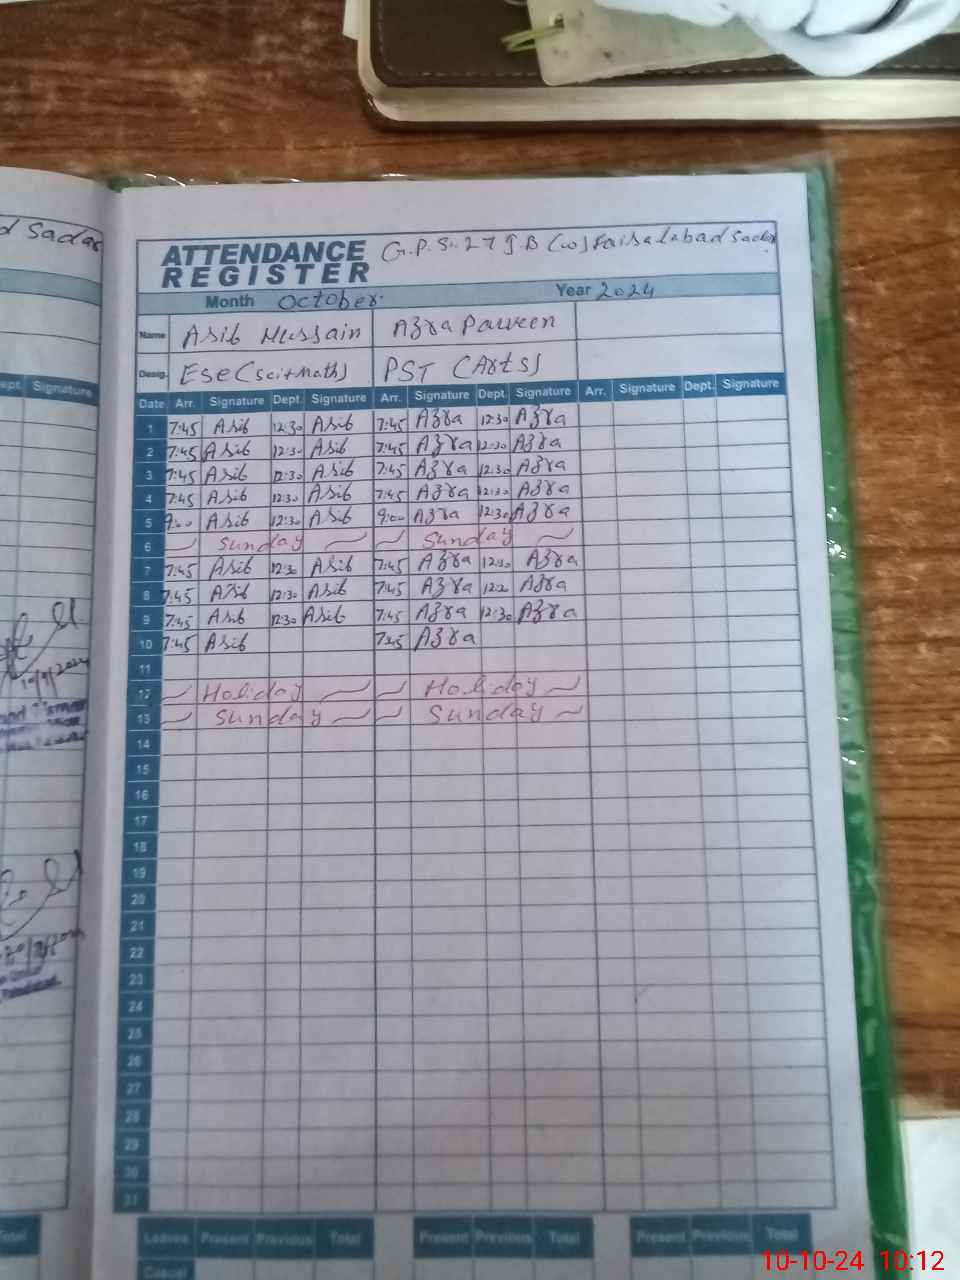 d Sadar
ATTENDANCE REGISTER G.P.S. 27 J.B (W) Faisalabad Sadar
Month October Year 2024
Name Asib Hussain Azra Parveen
Desig. ESE (Sci+Math) PST (Arts)
ept. Signature
Date Arr. Signature Dept. Signature Arr. Signature Dept. Signature Arr. Signature Dept. Signature
1 7:45 Asib 12:30 Asib 7:45 Azra 12:30 Azra
2 7:45 Asib 12:30 Asib 7:45 Azra 12:30 Azra
3 7:45 Asib 12:30 Asib 7:45 Azra 12:30 Azra
4 7:45 Asib 12:30 Asib 7:45 Azra 12:30 Azra
5 9:00 Asib 12:30 Asib 9:00 Azra 12:30 Azra
6 Sunday Sunday
7 7:45 Asib 12:30 Asib 7:45 Azra 12:30 Azra
8 7:45 Asib 12:30 Asib 7:45 Azra 12:30 Azra
9 7:45 Asib 12:30 Asib 7:45 Azra 12:30 Azra
10 7:45 Asib 7:45 Azra
11
12 Holiday Holiday
13 Sunday Sunday
14
15
16
17
18
19
20
21
22
23
24
25
26
27
28
29
30
31
Total Leaves Present Previous Total Present Previous Total Present Previous Total
Casual
10-10-24 10:12